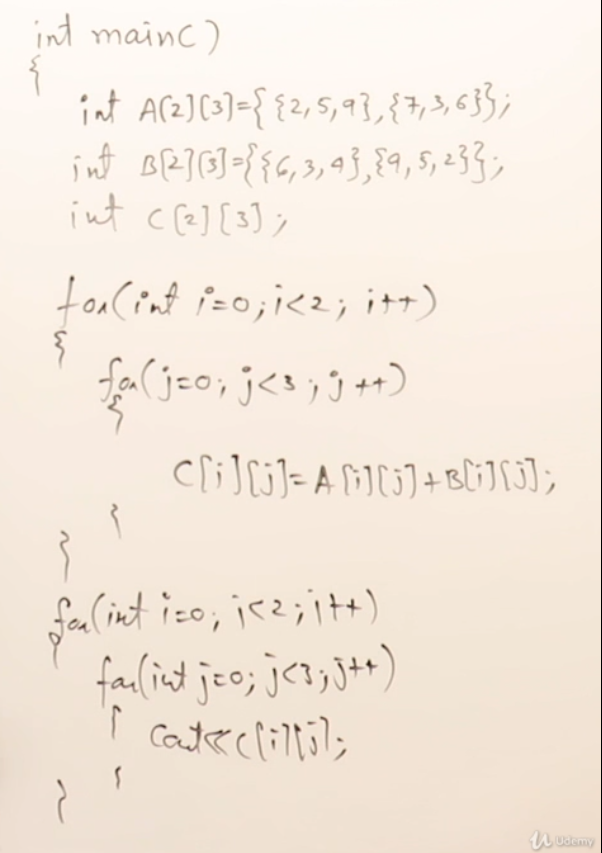 int main()
{
int A[2][3]={{2,5,9},{7,3,6}};
int B[2][3]={{6,3,4},{9,5,2}};
int C[2][3];
for(int i=0;i<2; i++)
{
for(j=0; j<3; j++)
{
C[i][j]=A[i][j]+B[i][j];
}
}
for(int i=0; i<2; i++)
{
for(int j=0; j<3; j++)
{
Cout<<C[i][j];
}
}
Udemy